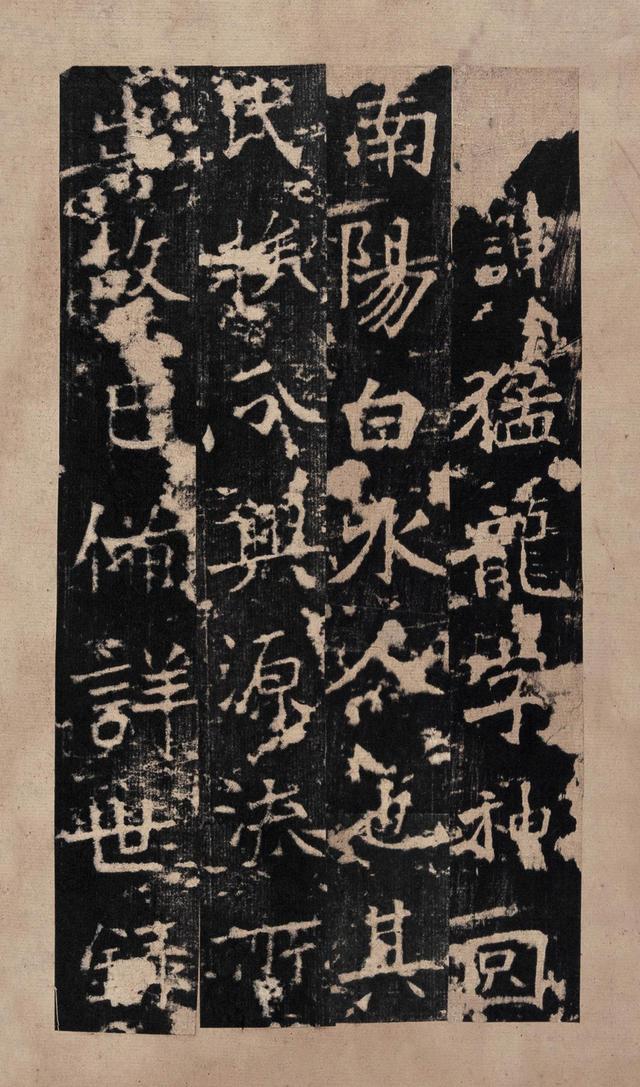 諱猛龍字神冏
南陽白水人也其
氏族分興源流所
故已備詳世録